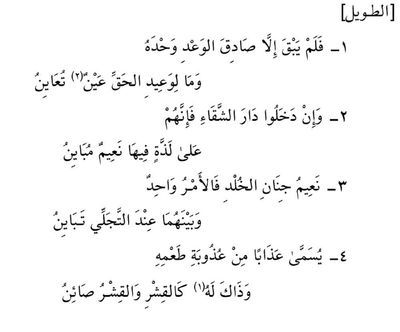 [الطويل]
١ـ فَلَمْ يَبْقَ إِلَّا صَادِقَ الوَعْدِ وَحْدَهُ
وَمَا لِوَعِيدِ الحَقِّ عَيْنٌ(٢) تُعَايِنُ
٢ـ وَإِنْ دَخَلُوا دَارَ الشَّقَاءِ فَإِنَّهُمْ
عَلىٰ لَذَّةٍ فِيهَا نَعِيمٌ مُبَايِنُ
٣ـ نَعِيمُ جِنَانِ الخُلْدِ فَالأَمْرُ وَاحِدٌ
وَبَيْنَهُمَا عِنْدَ التَّجَلِّي تَبَايِنُ
٤ـ يُسَمَّىٰ عَذَابًا مِنْ عُذُوبَةِ طَعْمِهِ
وَذَاكَ لَهُ(١) كَالقِشْرِ وَالقِشْرُ صَائِنُ